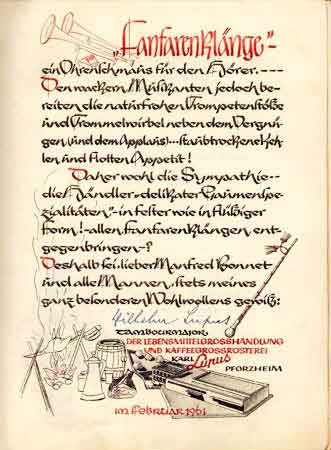 „Fanfarenklänge"-
ein Ohrenschmaus für den Hörer. ----
Den wackern Musikanten jedoch be-
reiten die naturfrohen Trompetenstöße
und Trommelwirbel neben dem Vergnü-
gen (und dem Applaus)... staubtrockene Keh-
len und flotten Appetit!
Daher wohl die Sympathie--
die „Händler-delikater Gaumenspe-
zialitäten"- in fester wie in flüßiger
Form! - allen Fanfarenklängen ent-
gegenbringen-?
Deshalb sei, lieber Manfred Bonnet
und alle Mannen, stets meines
ganz besonderen Wohlwollens gewiß:
Wilhelm Lupus
TAMBOURMAJOR
DER LEBENSMITTELGROSSHANDLUNG
UND KAFFEEGROSSRÖSTEREI
KARL Lupus PFORZHEIM
IM FEBRUAR 1961